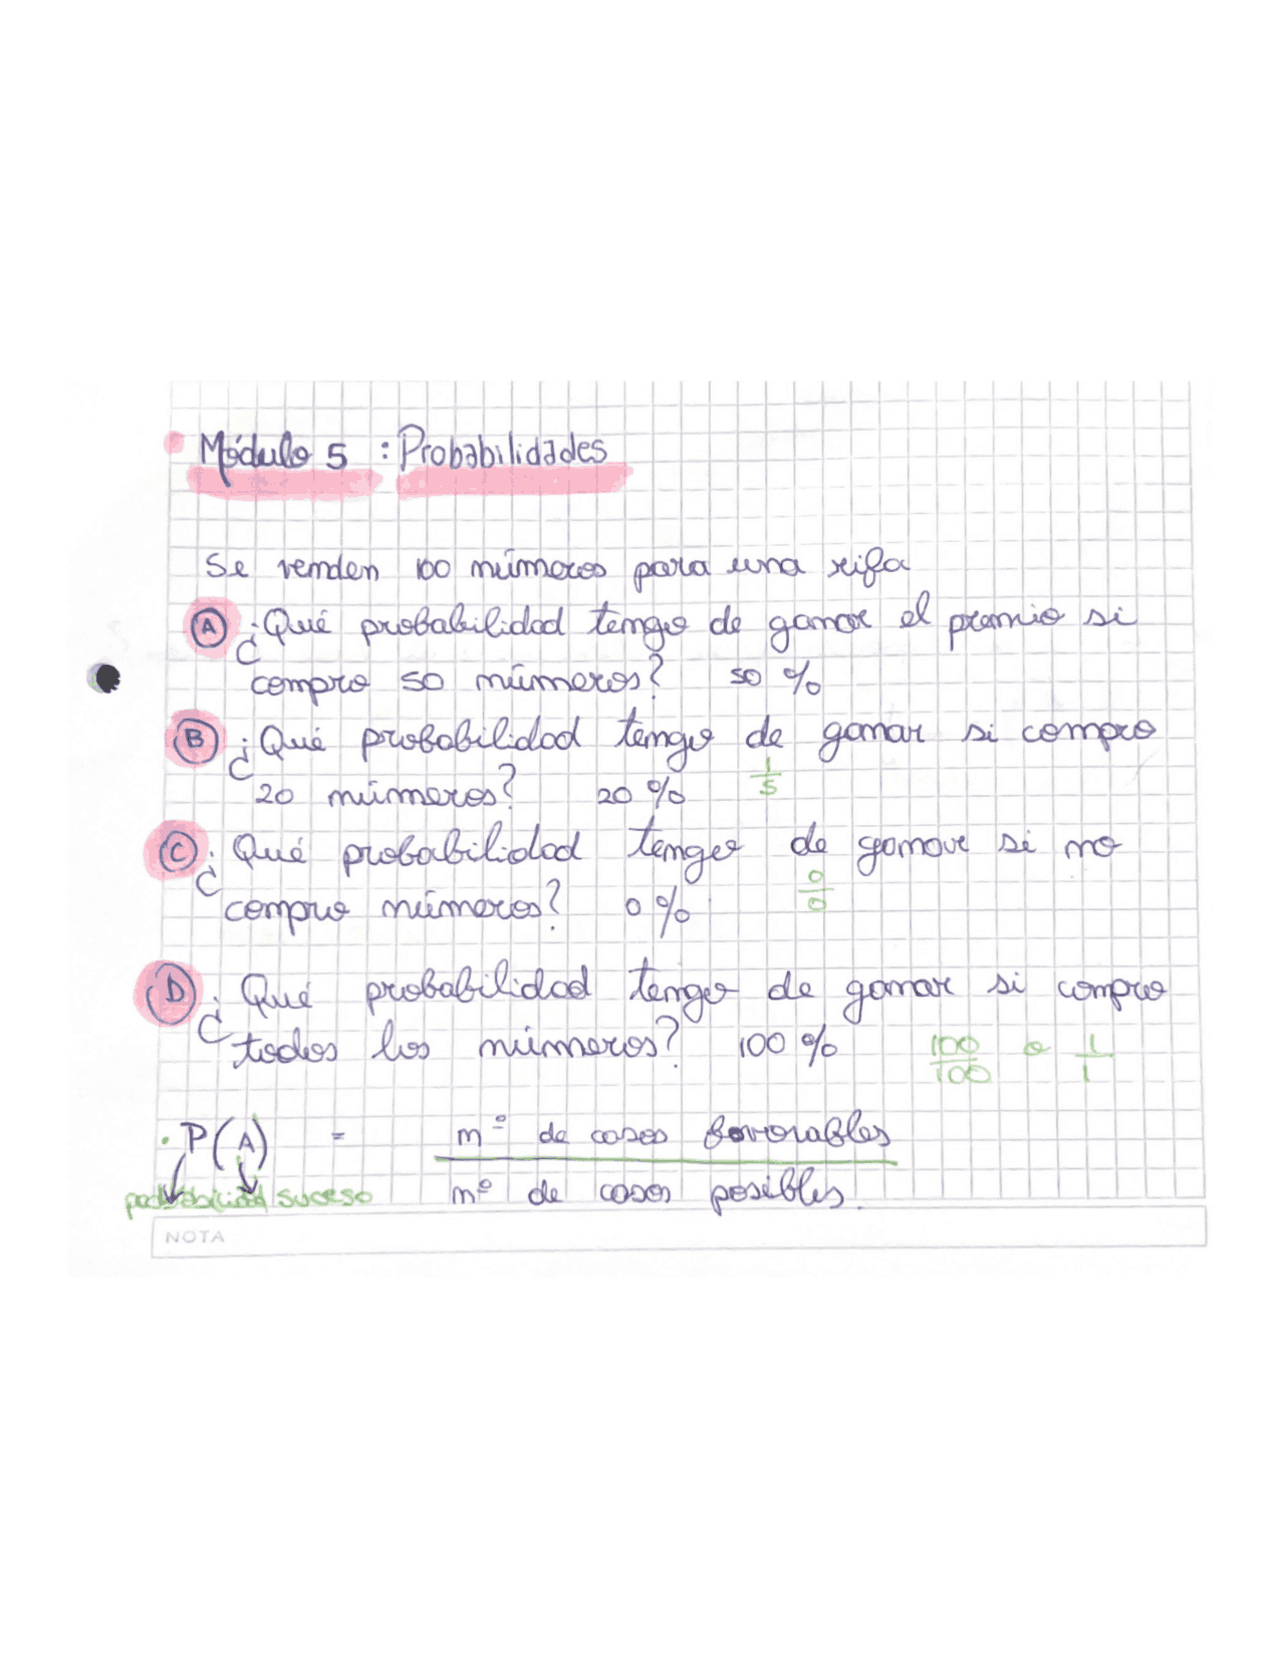 Módulo 5 : Probabilidades
Se venden 100 números para una rifa
A ¿Qué probabilidad tengo de ganar el premio si
compro 50 números? 50 %
B ¿Qué probabilidad tengo de ganar si compro
20 números? 20 % 1/5
C ¿Qué probabilidad tengo de ganar si no
compro números? 0 % 0/0
D ¿Qué probabilidad tengo de ganar si compro
todos los números? 100 % 100/100 o 1/1
· P(A) = nº de casos favorables
probabilidad suceso nº de casos posibles.
NOTA